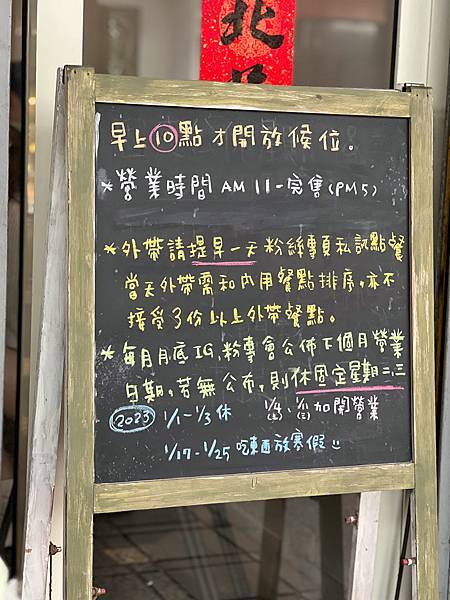 北
早上10點才開放候位。
*營業時間 AM 11-完售(PM5)
*外帶請提早一天粉絲專頁私訊點餐
當天外帶需和內用餐點排序,亦不
接受3份以上外帶餐點。
*每月月底IG,粉專會公佈下個月營業
日期,若無公布,則休固定星期二、三
2023 1/1-1/3 休 1/4(三)、1/11(三) 加開營業
1/17-1/25 吃東西放寒假